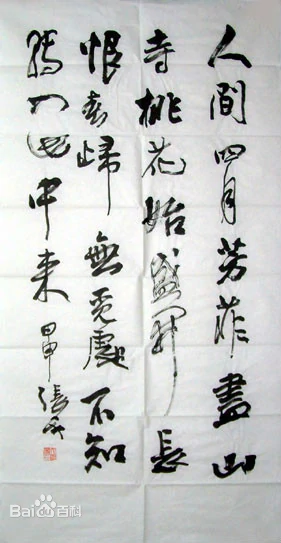 人間四月芳菲盡山
寺桃花始盛開長
恨春歸無覓處不知
轉入此中来
張
Bai百科